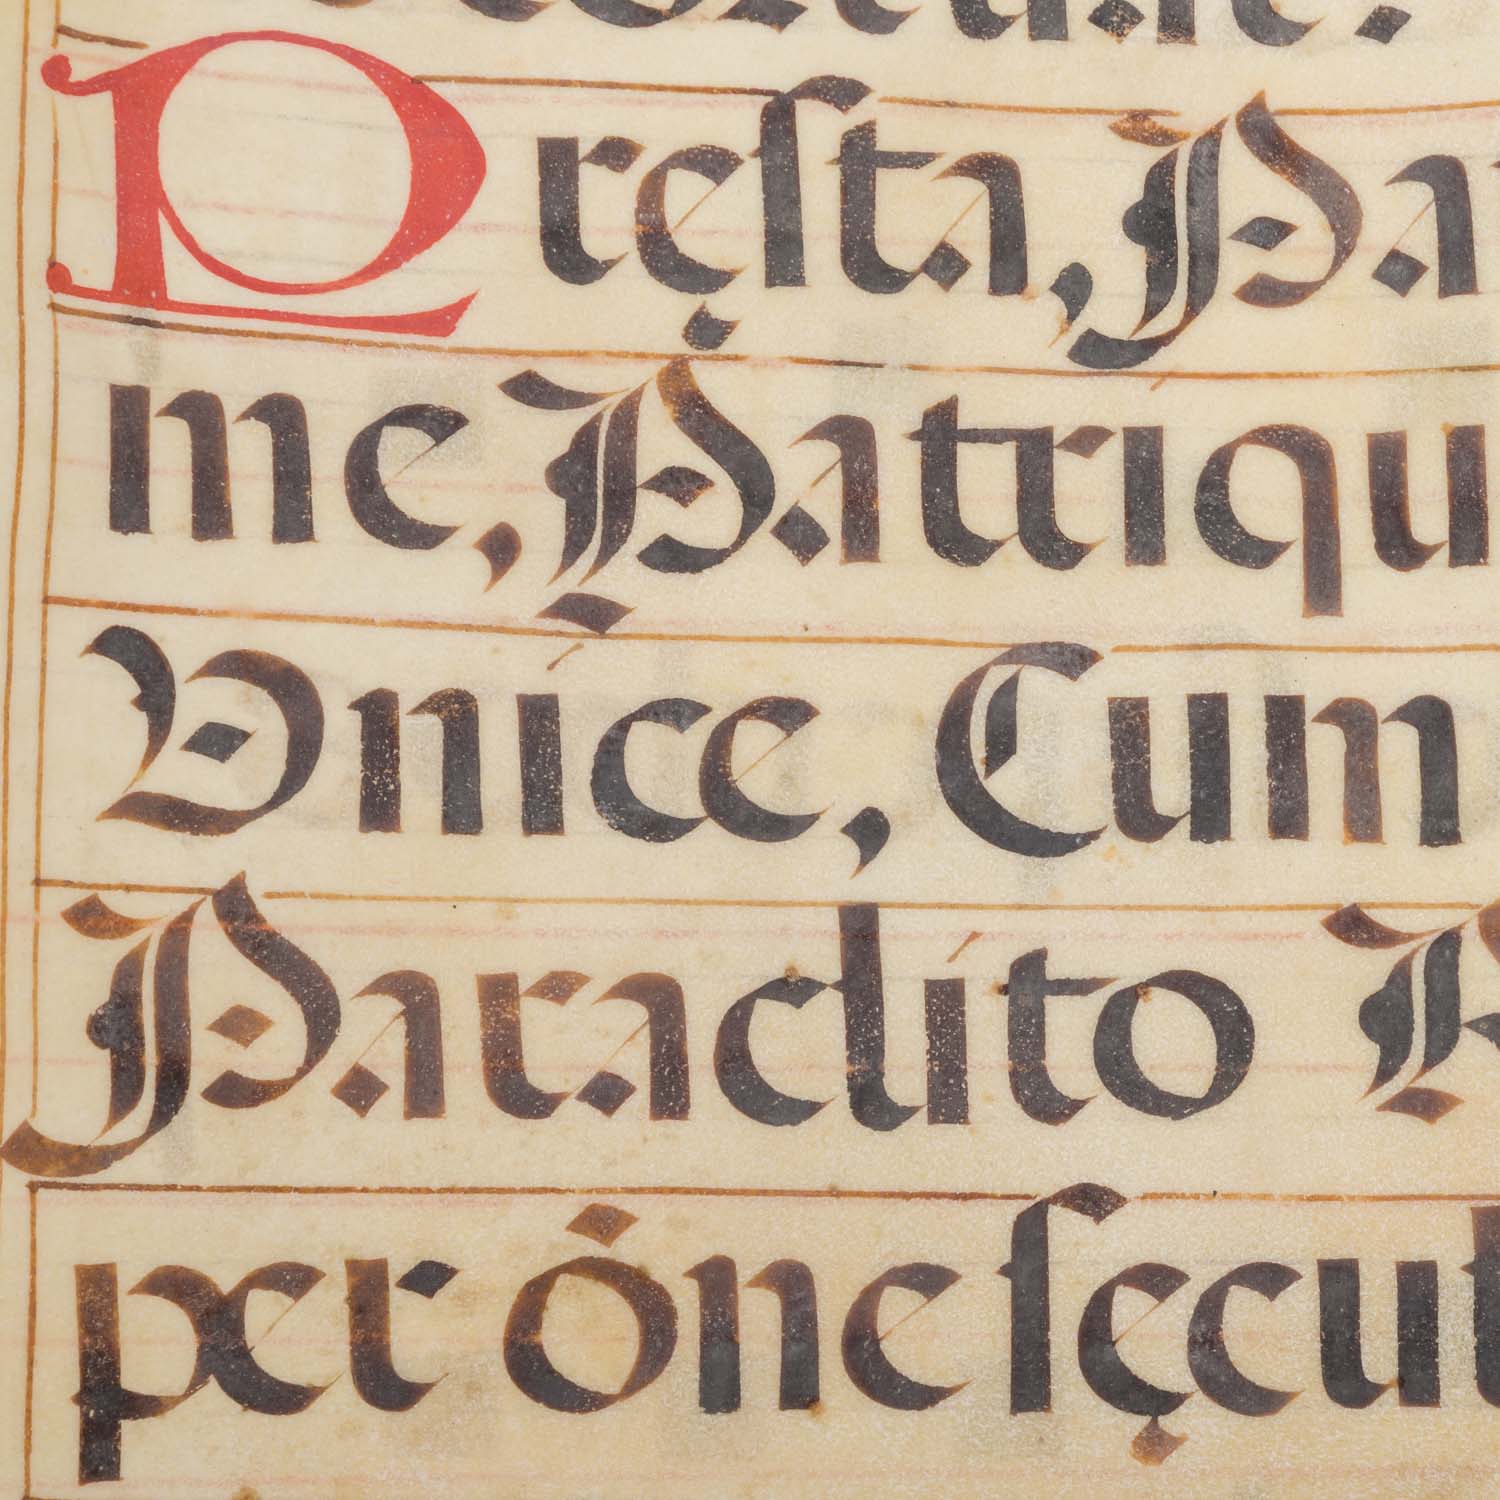 Pręſta, Pa
me, Patriqu
Vníce, Cum
Paraclíto R
per ōne ſęcul